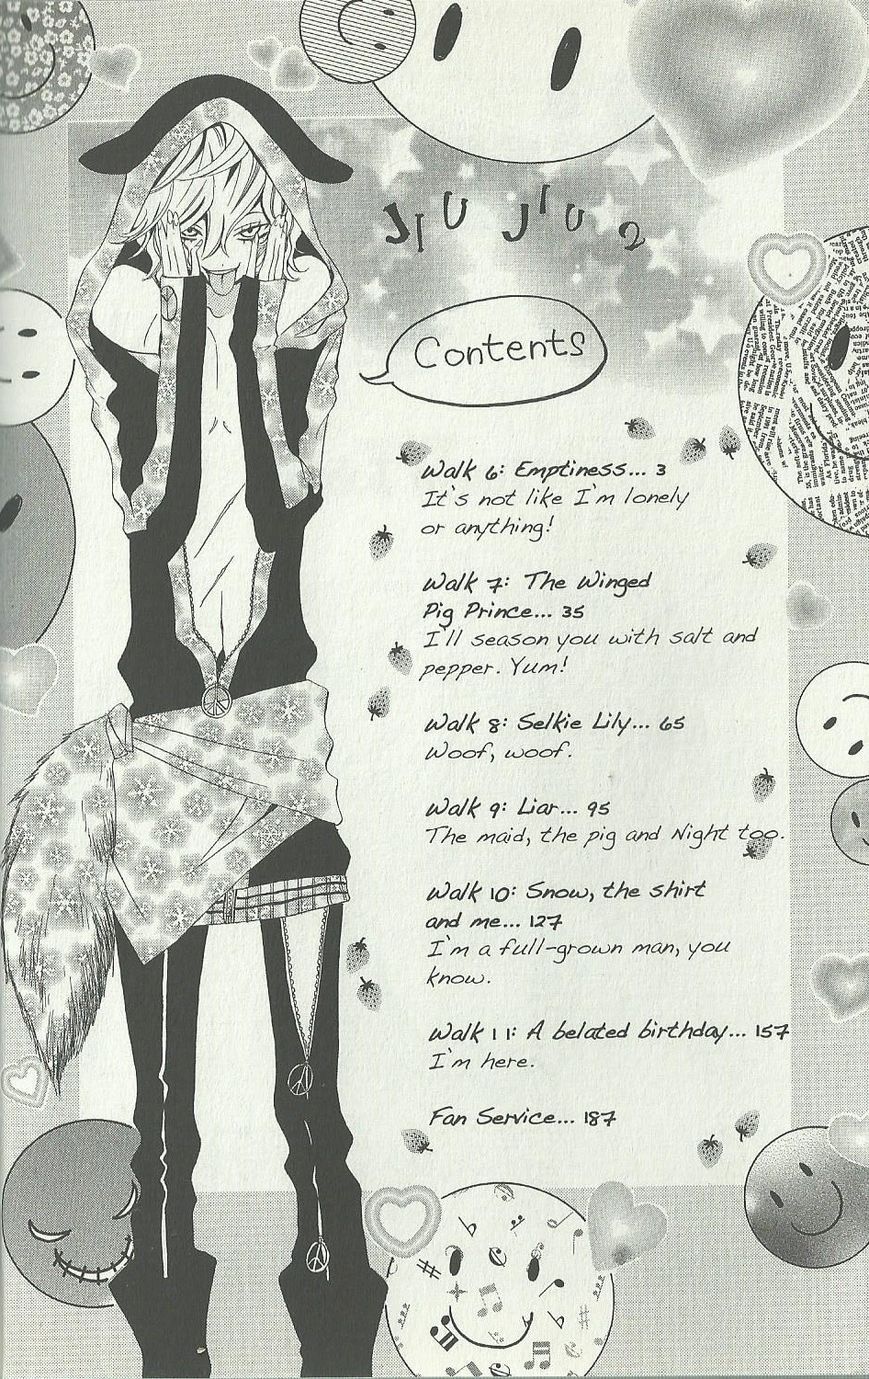 JIU JIU 2
Contents
Walk 6: Emptiness... 3
It's not like I'm lonely
or anything!
Walk 7: The Winged
Pig Prince... 35
I'll season you with salt and
pepper. Yum!
Walk 8: Selkie Lily... 65
Woof, woof.
Walk 9: Liar... 95
The maid, the pig and Night too.
Walk 10: Snow, the shirt
and me... 127
I'm a full-grown man, you
know.
Walk 11: A belated birthday... 157
I'm here.
Fan Service... 187